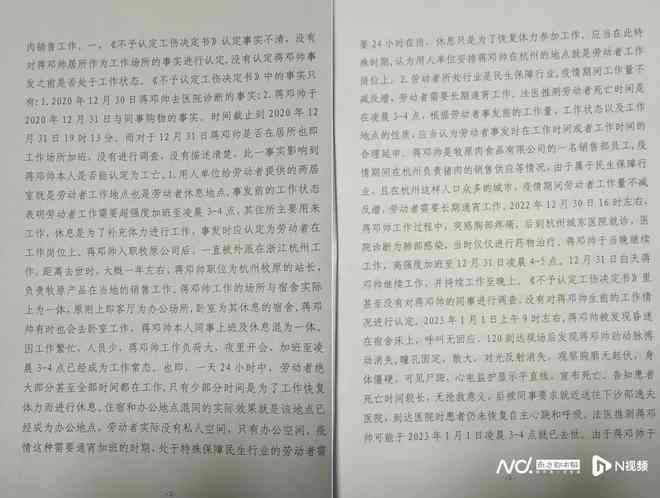 肉销售工作。一、《不予认定工伤决定书》认定事实不清。没有
对蒋邓帅居所作为工作场所的事实进行认定,没有认定蒋邓帅事
发之前是否处于工作状态。《不予认定工伤决定书》中的事实只
有:1.2020年12月30日蒋邓帅去医院诊断的事实;2.蒋邓帅于
2020年12月31日与同事购物的事实。时间截止到2020年12
月31日19时13分。而对于12月31日蒋邓帅是否在居所也即
工作场所加班,没有进行调查,没有描述清楚,此一事实影响到
蒋邓帅本人是否能认定为工亡。1.用人单位给劳动者提供的两居
室既是劳动者工作地点也是劳动者休息地点,事发前的工作状态
表明劳动者工作需要超强度加班至凌晨3-4点,其住所主要用来
工作,休息是为了补充体力进行工作,事发时应认定为劳动者在
工作岗位上。蒋邓帅入职牧原公司后,一直被外派在浙江杭州工
作,距离去世时,大概一年左右,蒋邓帅职位为杭州牧原的站长,
负责牧原产品在当地的销售工作。蒋邓帅工作的场所与宿舍实际
上为一体,原则上即客厅为办公场所,卧室为其休息的宿舍,蒋邓
帅有时也会去卧室工作。蒋邓帅本人同事上班及休息混为一体。
因工作繁忙,人员少,蒋邓帅工作负荷大,夜里开会,加班至凌
晨3-4点已经成为工作常态。也即,一天24小时中,劳动者绝
大部分甚至全部时间都在工作,只有少部分时间是为了工作恢复
体力而进行休息。住宿和办公地点混同的实际效果就是该地点已
经成为办公地点。劳动者实际没有私人空间,只有办公空间。疫
情这种需要通宵加班的时期,处于特殊保障民生行业的劳动者需
要24小时在岗。休息只是为了恢复体力参加工作。应当在此特
殊时期,认为用人单位安排蒋邓帅在杭州的地点就是劳动者工作
岗位上。2.劳动者所处行业是民生保障行业,疫情期间工作量不
减反增,劳动者需要长期通宵工作。法医推测劳动者死亡时间是
在凌晨3-4点,根据劳动者事发前的工作量、工作状态以及工作
地点的性质,应当认为劳动者事发时在工作时间或者工作时间的
合理延申。蒋邓帅是牧原肉食品有限公司的一名销售部员工,疫
情期间在杭州负责猪肉的销售供应等情况,由于属于民生保障行
业,且在杭州这样人口众多的城市,疫情期间劳动者工作量不减
反增,劳动者需要长期通宵工作。2022年12月30日16时左右,
蒋邓帅工作过程中,突感胸部疼痛,后到杭州城东医院就诊,医
院诊断为肺部感染,当时仅仅进行药物治疗。蒋邓帅于当晚继续
工作,高强度加班至12月31日凌晨4-5点,12月31日白天蒋
邓帅继续工作,并持续工作至晚上。《不予认定工伤决定书》里
甚至没有对蒋邓帅的同事进行调查,没有对蒋邓帅生前的工作情
况进行认定。2023年1月1日上午9时左右,蒋邓帅被发现昏迷
在宿舍床上,呼叫无回应。120到达现场后发现蒋邓帅劲动脉搏
动消失,瞳孔固定,散大,对光反射消失,观察胸廓无起伏,身
体僵硬,可见尸斑,心电监护显示平直线,宣布死亡。告知患者
死亡时间较长,无抢救意义,后被同事要求就近送往下沙邵逸夫
医院,到达医院时患者仍未恢复自主心跳和呼吸。法医推测蒋邓
帅可能于2023年1月1日凌晨3-4点就已去世。由于蒋邓帅于
-2-
南方都市报
N视频